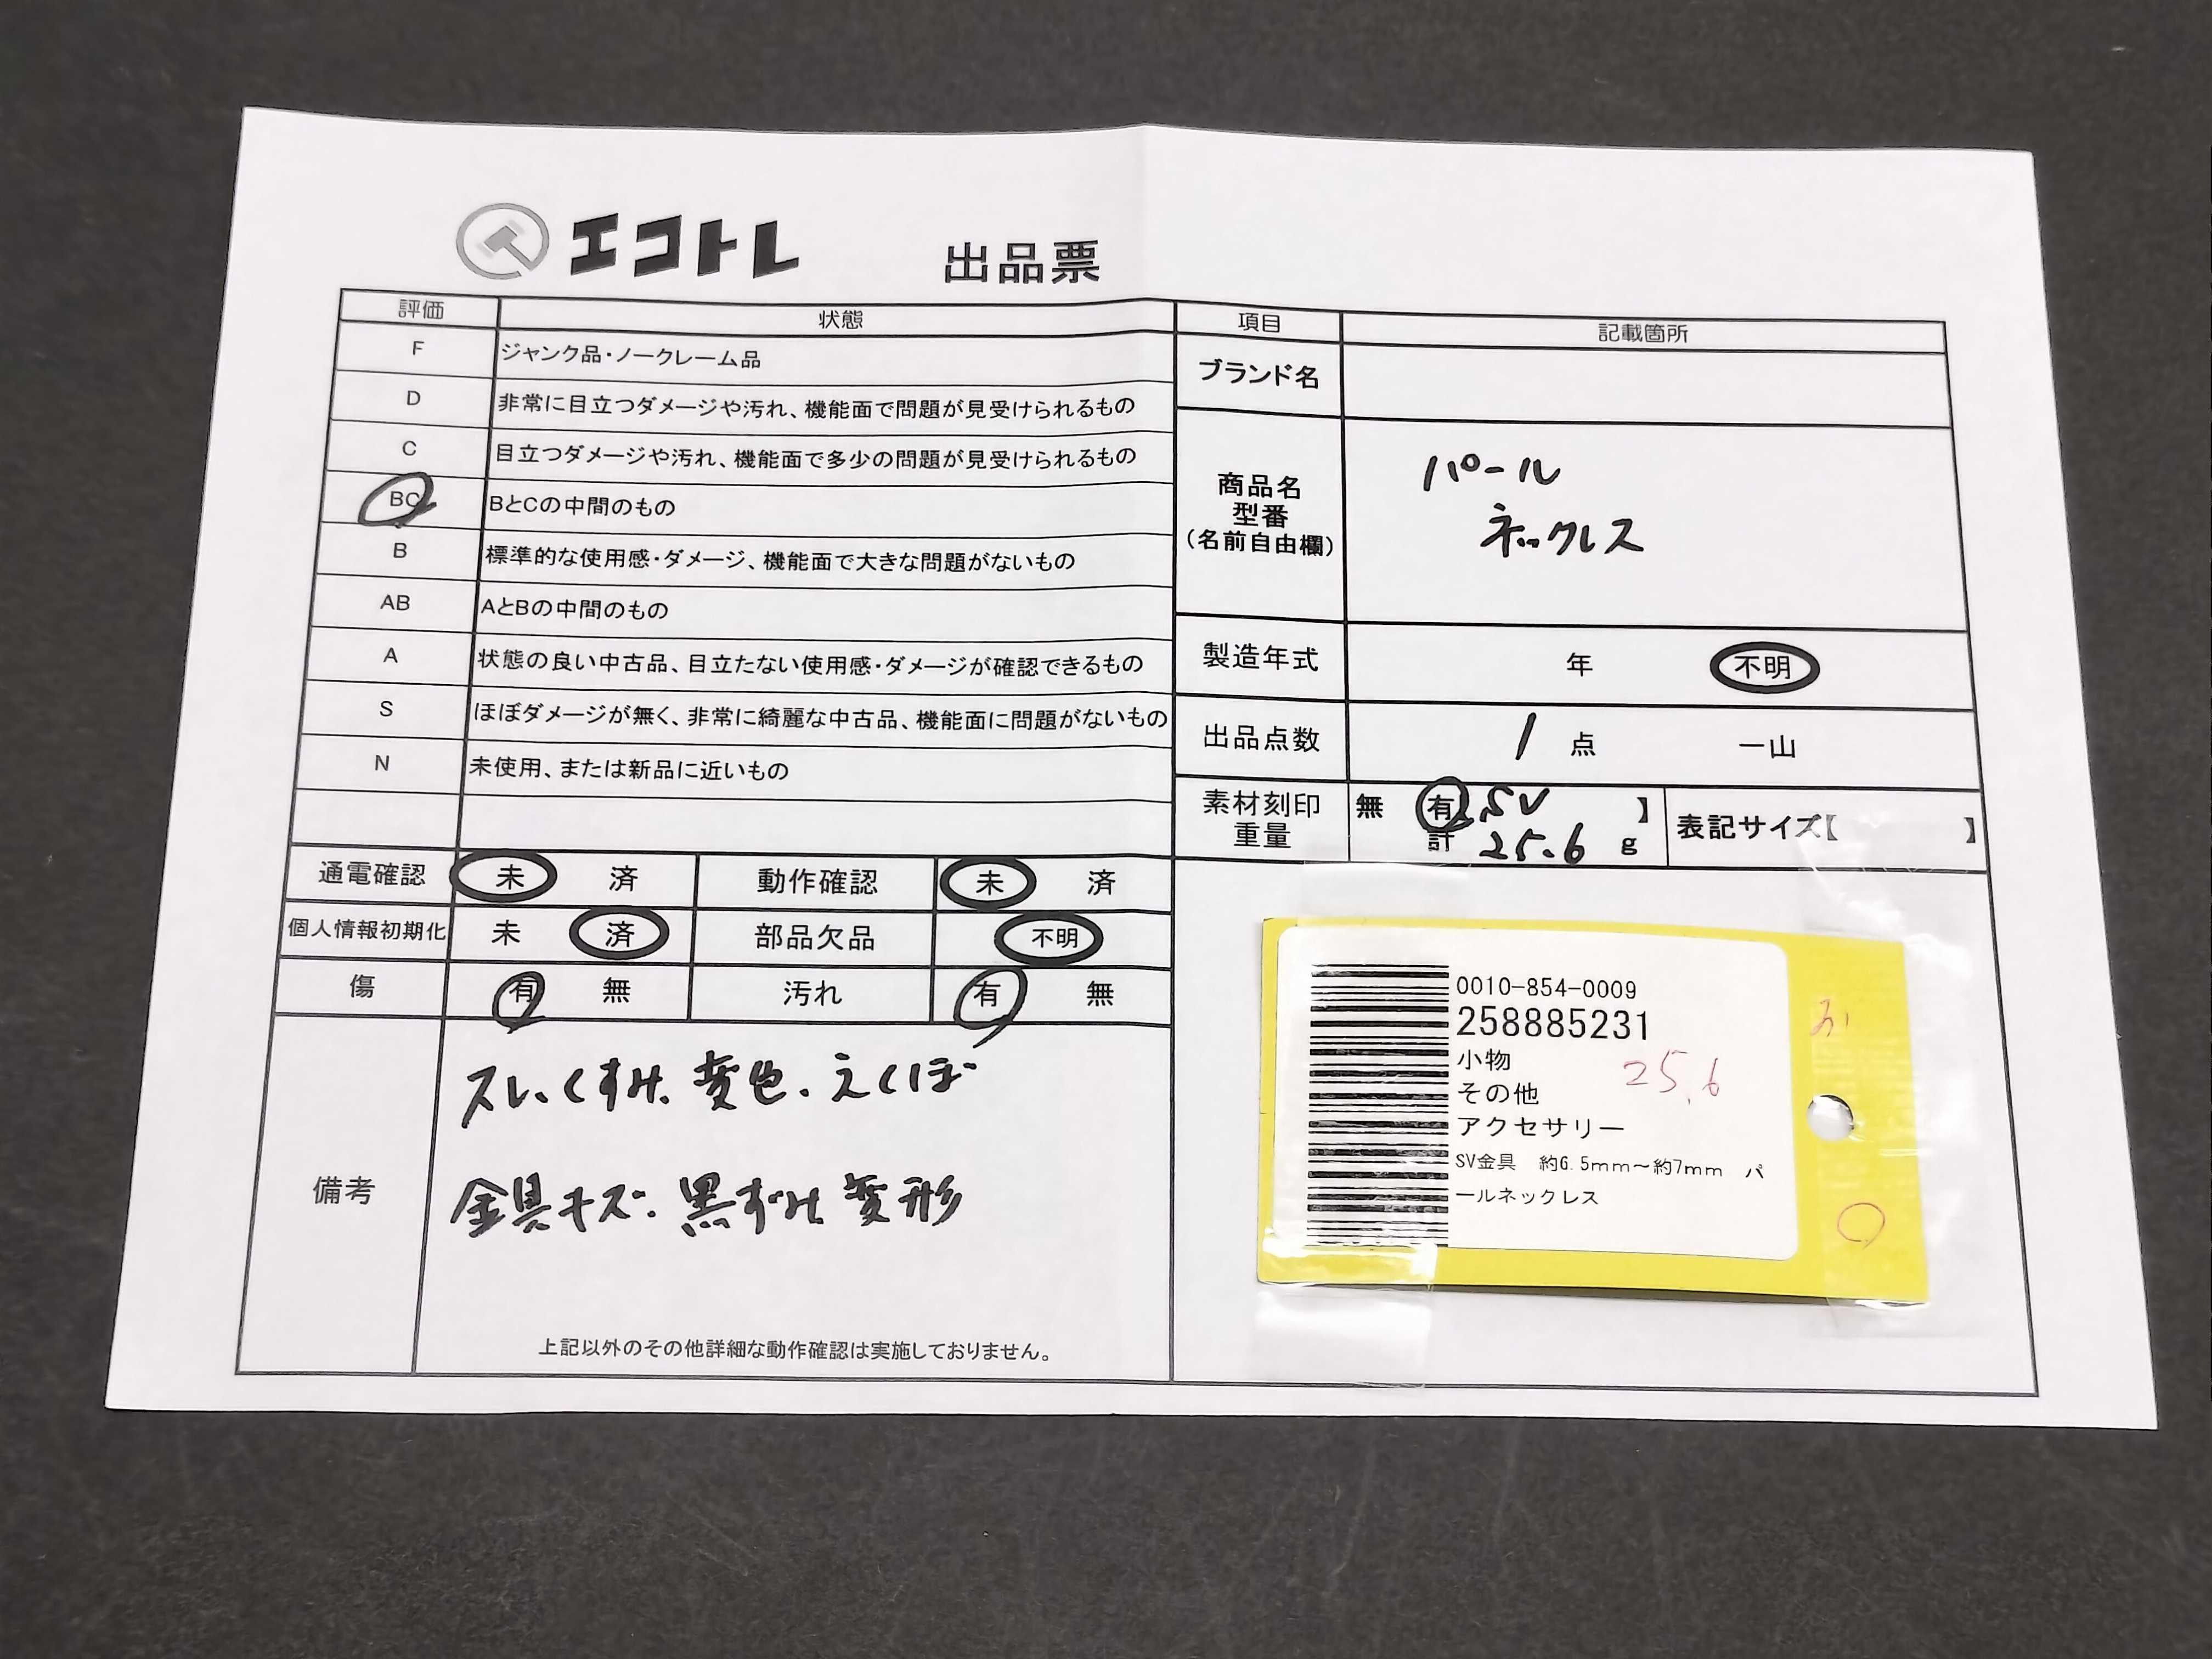 エコトレ 出品票
評価 状態
F ジャンク品・ノークレーム品
D 非常に目立つダメージや汚れ、機能面で問題が見受けられるもの
C 目立つダメージや汚れ、機能面で多少の問題が見受けられるもの
BC BとCの中間のもの
B 標準的な使用感・ダメージ、機能面で大きな問題がないもの
AB AとBの中間のもの
A 状態の良い中古品、目立たない使用感・ダメージが確認できるもの
S ほぼダメージが無く、非常に綺麗な中古品、機能面に問題がないもの
N 未使用、または新品に近いもの
通電確認 未 済 動作確認 未 済
個人情報初期化 未 済 部品欠品 不明
傷 有 無 汚れ 有 無
備考
スレ、くすみ、変色、えくぼ
金具キズ、黒ずみ変形
上記以外のその他詳細な動作確認は実施しておりません。
項目 記載箇所
ブランド名
商品名
型番
(名前自由欄)
パール
ネックレス
製造年式 年 不明
出品点数 1 点 一山
素材刻印
重量
無 有 SV 】
計 25.6 g
表記サイズ【 】
0010-854-0009
258885231
小物
その他
アクセサリー
SV金具 約6.5mm～約7mm パ
ールネックレス
25.6